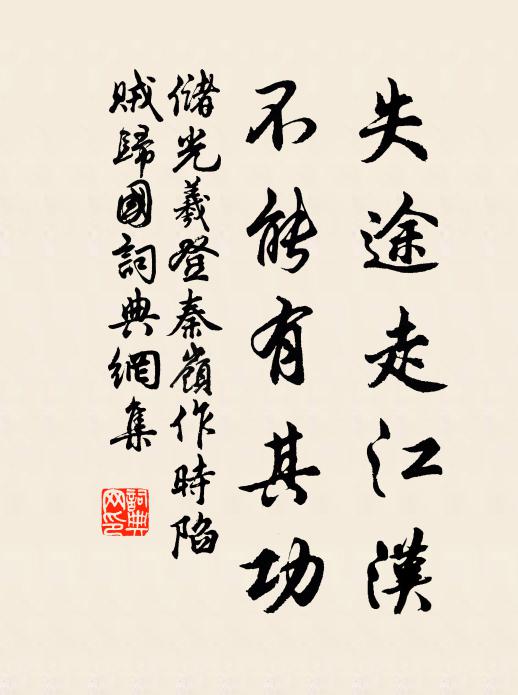 失途走江漢
不能有其功
儲光羲登秦嶺作時陷
賊歸國詞典網集
詞典網印